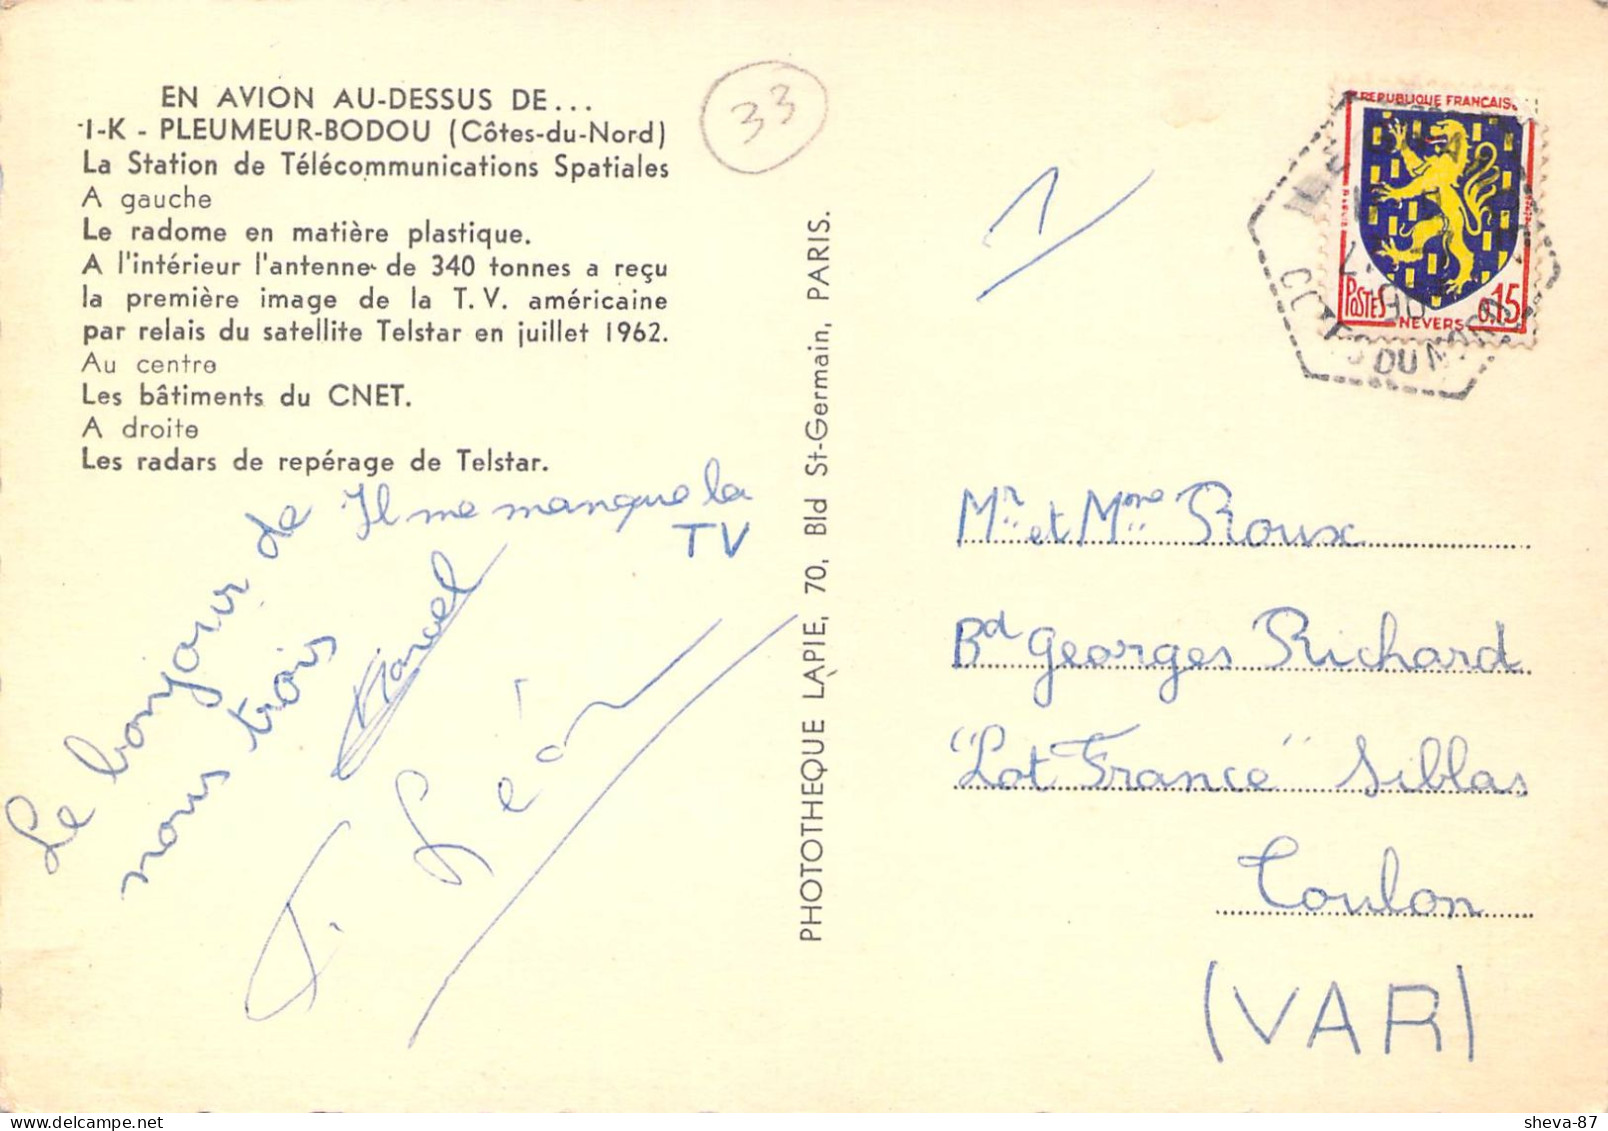 EN AVION AU-DESSUS DE...
1-K - PLEUMEUR-BODOU (Côtes-du-Nord)
La Station de Télécommunications Spatiales
A gauche
Le radome en matière plastique.
A l'intérieur l'antenne de 340 tonnes a reçu
la première image de la T. V. américaine
par relais du satellite Telstar en juillet 1962.
Au centre
Les bâtiments du CNET.
A droite
Les radars de repérage de Telstar.
33
Il me manque la
TV
Le bonjour de
nous trois
Marcel
Léon
PHOTOTHEQUE LAPIE, 70, Bld St-Germain, PARIS.
1
REPUBLIQUE FRANCAISE
POSTES
0,15
NEVERS
COTES DU NORD
Mr et Mme Roux
Bd Georges Richard
"Lot France" Siblas
Toulon
(VAR)
sheva-87